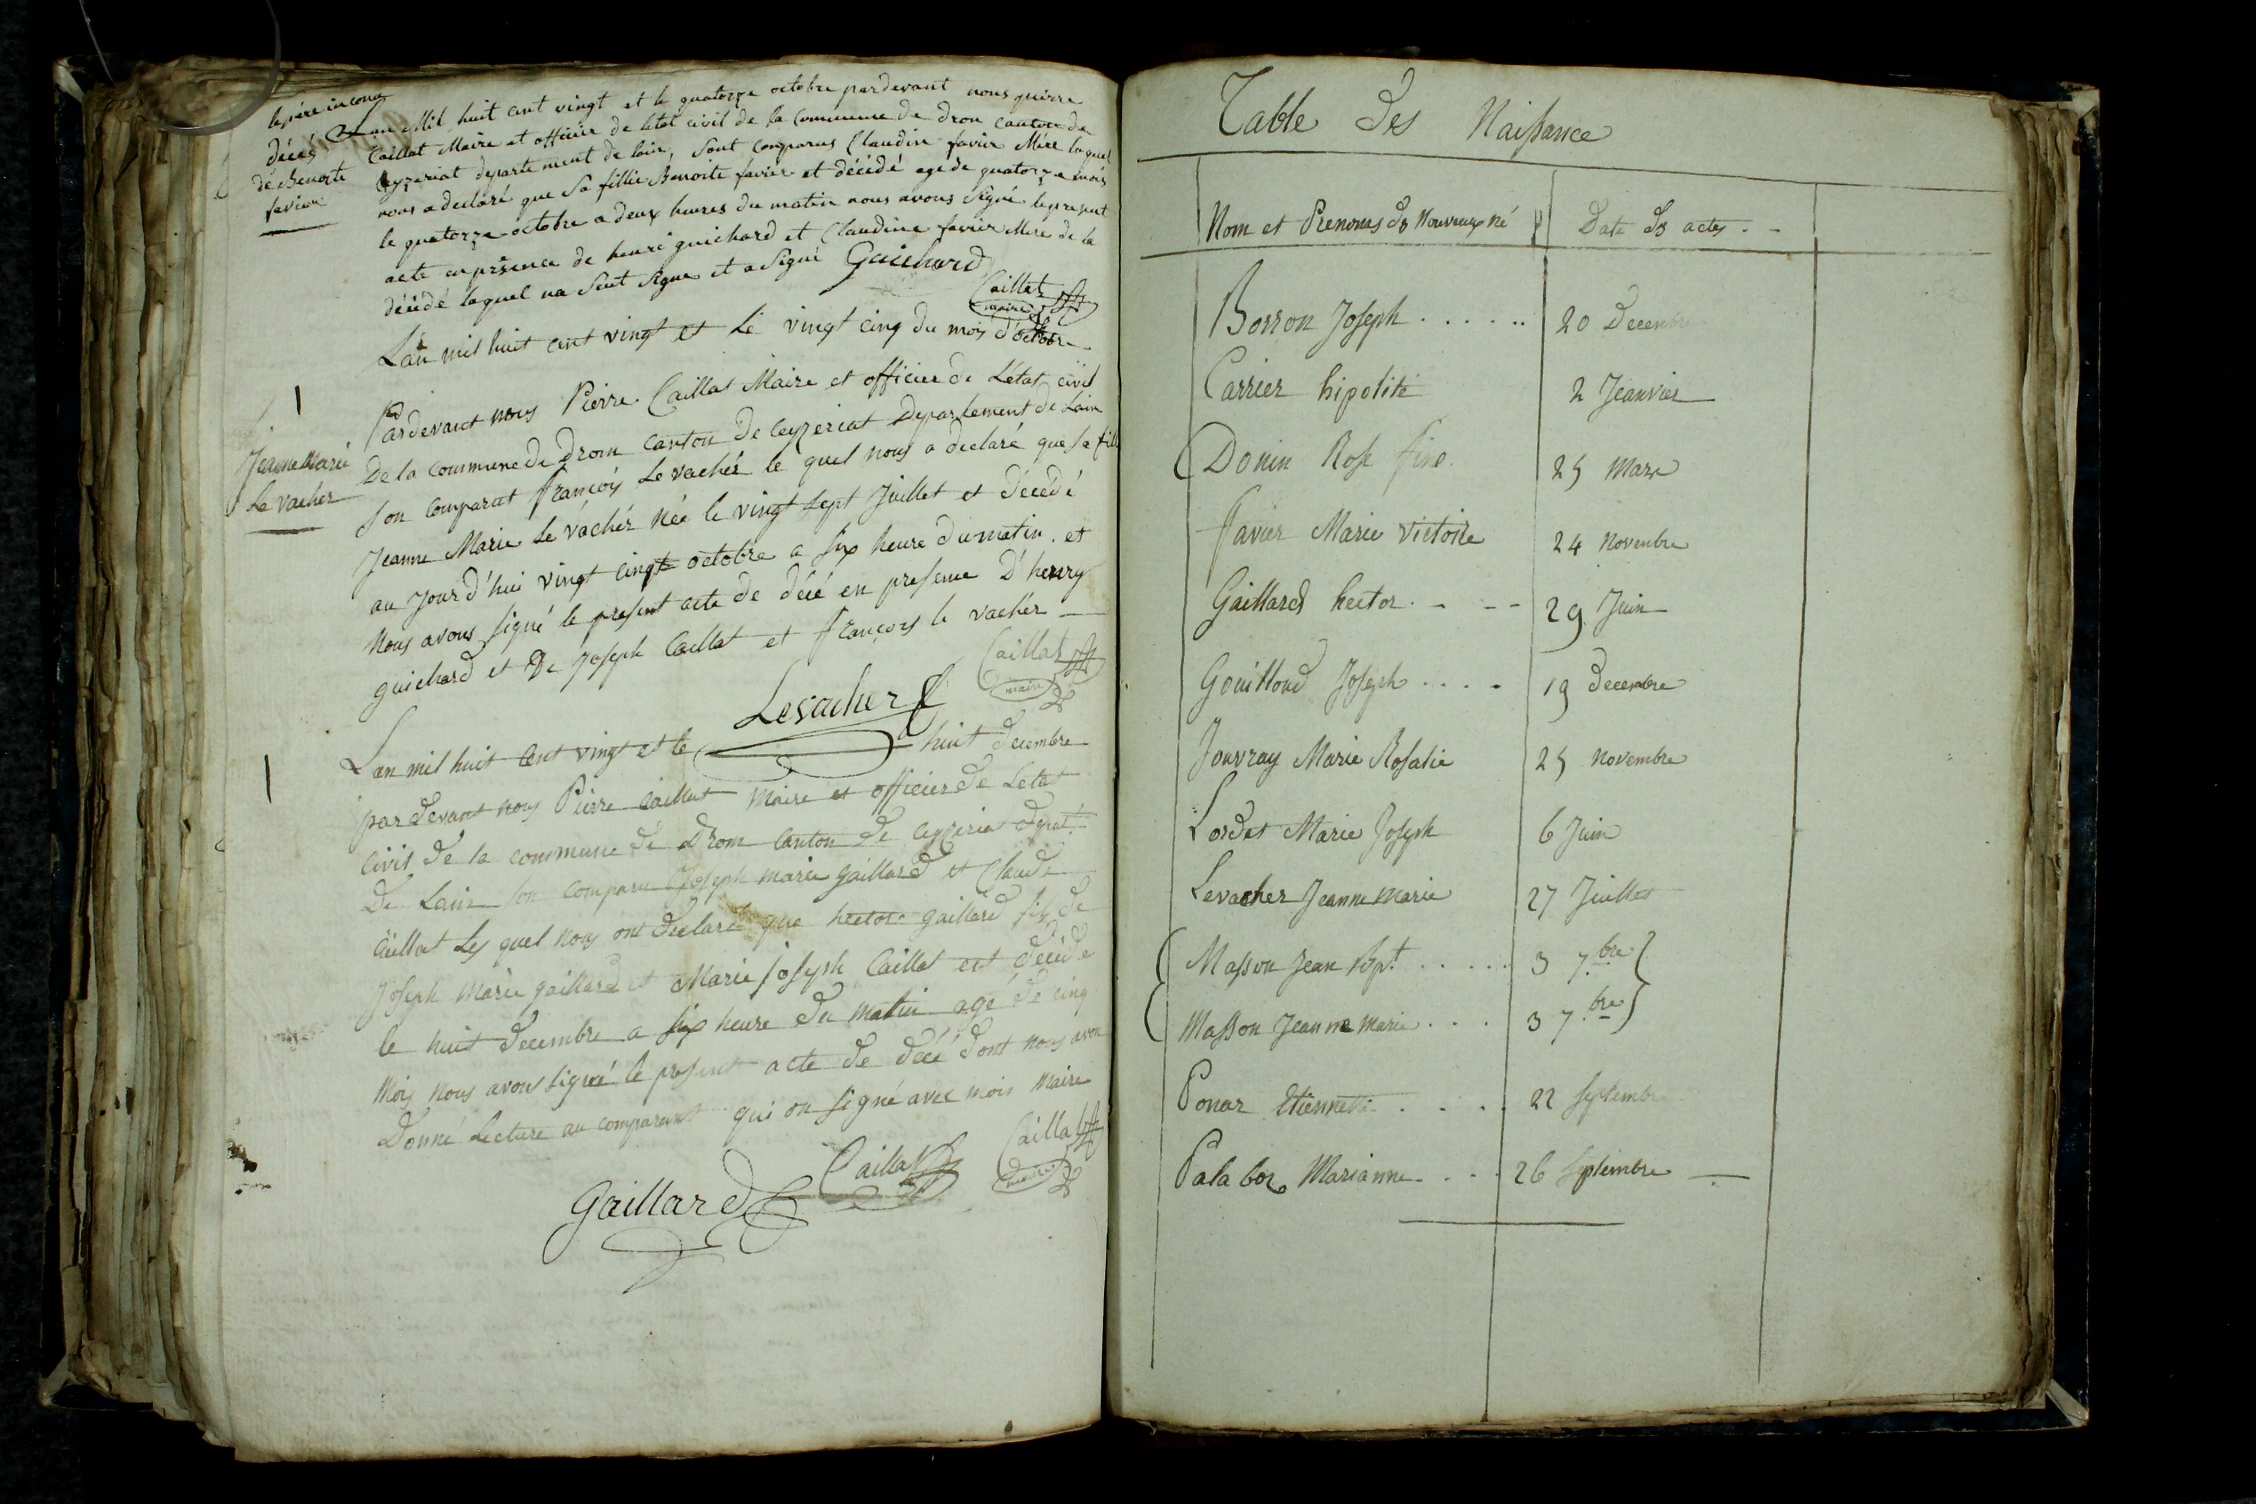 le père inconu
décès
de Benoite
favier
L'an Mil huit cent vingt et le quatorze octobre pardevant nous pierre
Caillat Maire et officier de letat civil de la Commune de dron canton de
Ceyzeriat departement de lain, sont comparus Claudine favier Mére laquel
nous a declaré que sa fillie Benoite favier et décédé age de quatorze mois
le quatorze octobre a deux heures du matin nous avons signé le present
acte en présence de henri guichard et Claudine favier Mere de la
décédé laquel na seut signe et a signé Guichard
Caillat
maire
L'an mil huit cent vingt et Le vingt cinq du mois d'octobre
Pardevant nous Pierre Caillat Maire et officier de L'état civil
Jeanne Marie
Le vacher
De la commune de Drom canton de Ceyzeriat Departement de Lain
son comparut françois Le vachér le quel nous a declaré que sa fille
Jeanne Marie Le váchér née le vingt sept Juillet et décedé
au Jour d'hui vingt cinq octobre a six heure du matin. et
Nous avons signé le present acte de décé en presence D'henry
guichard et De Joseph Caillat et françois le vachér
Caillat
maire
Levacher
Lan mil huit cent vingt et le huit decembre
par devant nous Pierre Caillat maire et officier de Letat
civil de la commune de Drom Canton de Ceyzeriat dépat.
De Lain son comparu Joseph marie gaillard et Claude
Caillat Les quel nous ont declaré que hector gaillard fils de
Joseph marie gaillard et Marie Joseph Caillat est décédé
le huit decembre a six heure du matin agé de cinq
Mois nous avons signé le present acte de décé dont nous avon
Donné Lecture au comparant qui on signé avec mois maire
Caillat
Caillat
maire
Gaillard
Table des Naissance
Nom et Prenoms ds Nouveaux né Date ds actes
Borron Joseph 20 Decembre
Carrier hipolite 2 Jeanvier
Donin Rose fine 25 Mars
Favier Marie victoire 24 Novembre
Gaillard hector 29 Juin
Gouilloud Joseph 19 decembre
Jouvray Marie Rosalie 25 Novembre
Lordet Marie Joseph 6 Juin
Levacher Jeanne Marie 27 Juillet
Masson Jean Bpt. 3 7.bre
Masson Jeanne Marie 3 7.bre
Ponar Etiennette 22 Septembre
Palaboz Marianne 26 Septembre